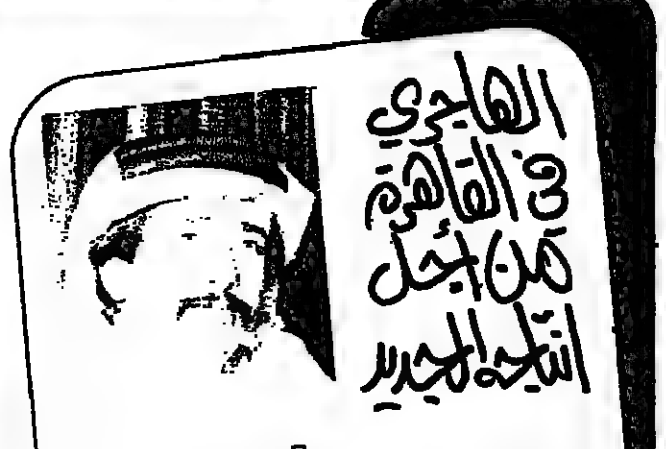 الهاجري
في القاهرة
من أجل
انتاجه الجديد